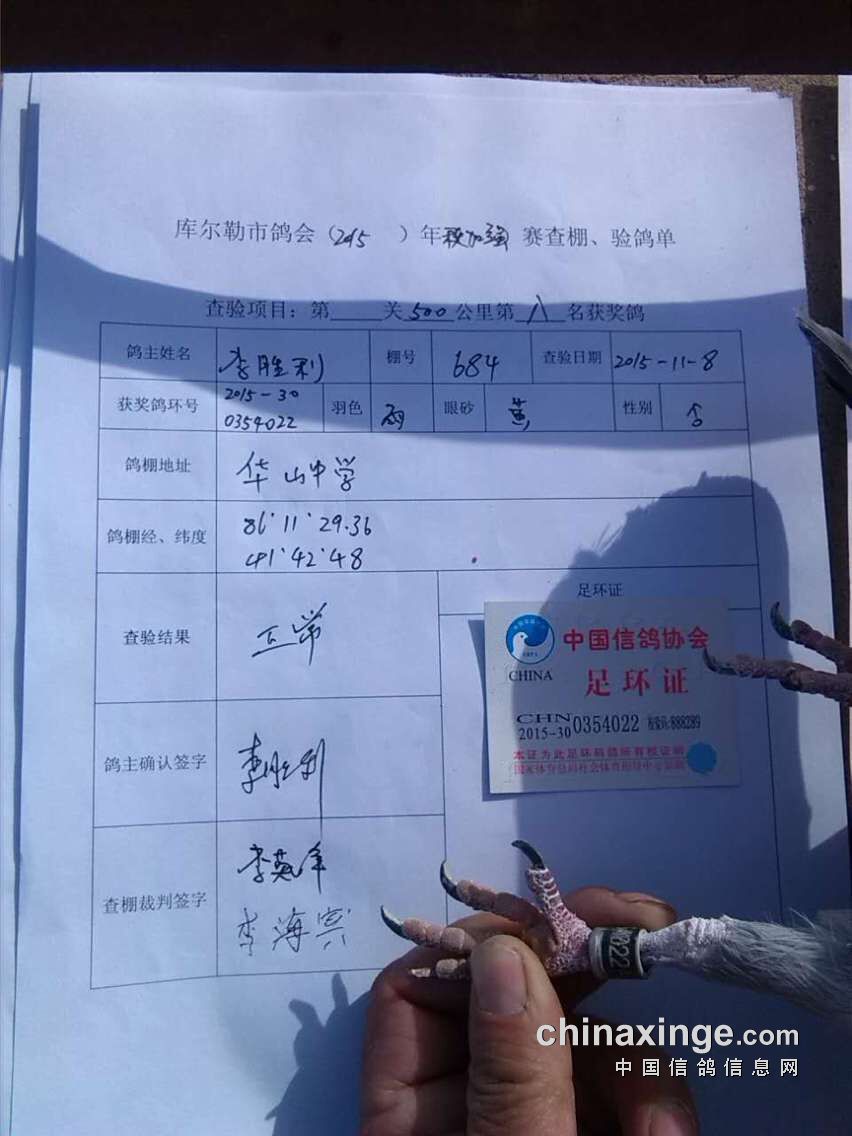 库尔勒市鸽会（2015 ）年秋加强 赛查棚、验鸽单
查验项目：第____关 500 公里第 八 名获奖鸽
鸽主姓名 李胜利 棚号 684 查验日期 2015-11-8
获奖鸽环号 2015-30 0354022 羽色 雨 眼砂 黄 性别
鸽棚地址 华山中学
鸽棚经、纬度 86°11'29.36
41°42'48
足环证
查验结果 正常
中国信鸽协会
CHINA
足环证
CHN
2015-30 0354022 888289
本证为此足环信鸽所有权证明
鸽主确认签字 李胜利
查棚裁判签字 李英
李海宾
022
chinaxinge.com
中国信鸽信息网